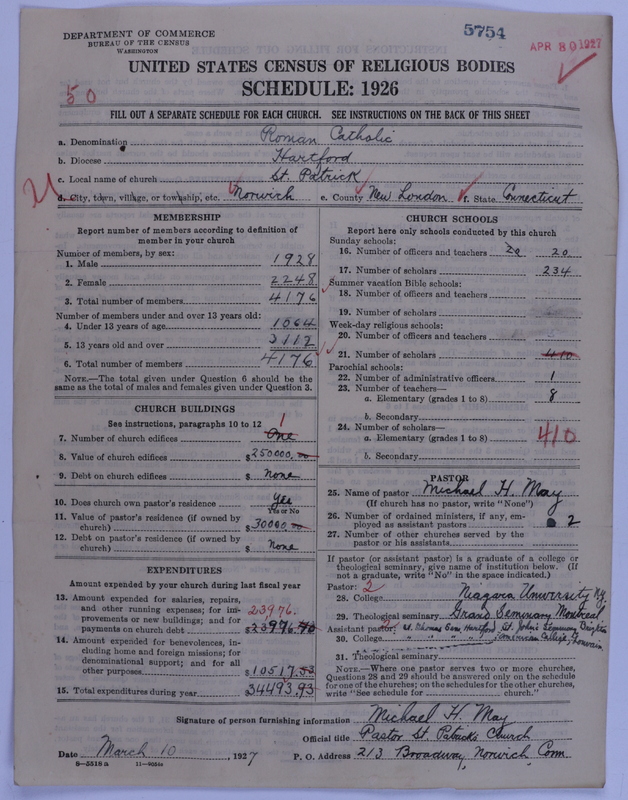 DEPARTMENT OF COMMERCE
BUREAU OF THE CENSUS
WASHINGTON
5754
APR 30 1927
UNITED STATES CENSUS OF RELIGIOUS BODIES
SCHEDULE: 1926
50
FILL OUT A SEPARATE SCHEDULE FOR EACH CHURCH. SEE INSTRUCTIONS ON THE BACK OF THIS SHEET
a. Denomination Roman Catholic
b. Diocese Hartford
c. Local name of church St. Patrick
d. City, town, village, or township, etc. Norwich e. County New London f. State Connecticut
MEMBERSHIP
Report number of members according to definition of
member in your church
Number of members, by sex:
1. Male 1928
2. Female 2248
3. Total number of members 4176
Number of members under and over 13 years old:
4. Under 13 years of age 1064
5. 13 years old and over 3112
6. Total number of members 4176
NOTE.—The total given under Question 6 should be the
same as the total of males and females given under Question 3.
CHURCH BUILDINGS
See instructions, paragraphs 10 to 12 1
7. Number of church edifices One
8. Value of church edifices $250000.00
9. Debt on church edifices $ None
10. Does church own pastor's residence Yes
Yes or No
11. Value of pastor's residence (if owned by
church) $30000.00
12. Debt on pastor's residence (if owned by
church) $ None
EXPENDITURES
Amount expended by your church during last fiscal year
13. Amount expended for salaries, repairs,
and other running expenses; for im-
provements or new buildings; and for
23976.
payments on church debt $23976.40
14. Amount expended for benevolences, in-
cluding home and foreign missions; for
denominational support; and for all
other purposes $10517.53
15. Total expenditures during year $34493.93
CHURCH SCHOOLS
Report here only schools conducted by this church
Sunday schools:
16. Number of officers and teachers 20 20
17. Number of scholars 234
Summer vacation Bible schools:
18. Number of officers and teachers
19. Number of scholars
Week-day religious schools:
20. Number of officers and teachers
21. Number of scholars 410
Parochial schools:
22. Number of administrative officers 1
23. Number of teachers—
a. Elementary (grades 1 to 8) 8
b. Secondary
24. Number of scholars—
a. Elementary (grades 1 to 8) 410
b. Secondary
PASTOR
25. Name of pastor Michael H. May
(If church has no pastor, write "None")
26. Number of ordained ministers, if any, em-
ployed as assistant pastors 2
27. Number of other churches served by the
pastor or his assistants
If pastor (or assistant pastor) is a graduate of a college or
theological seminary, give name of institution below. (If
not a graduate, write "No" in the space indicated.)
Pastor: 2
28. College Niagara University N.Y.
29. Theological seminary Grand Seminary Montreal
Assistant pastor: St. Thomas Sem. Hartford, St. John's Seminary Brighton
30. College " " " " American College, Louvain
31. Theological seminary
NOTE.—Where one pastor serves two or more churches,
Questions 28 and 29 should be answered only on the schedule
for one of the churches; on the schedules for the other churches,
write "See schedule for church."
Signature of person furnishing information Michael H. May
Official title Pastor St. Patricks Church
Date March 10, 1927 P. O. Address 213 Broadway, Norwich, Conn
8—5518 a 11—9034a